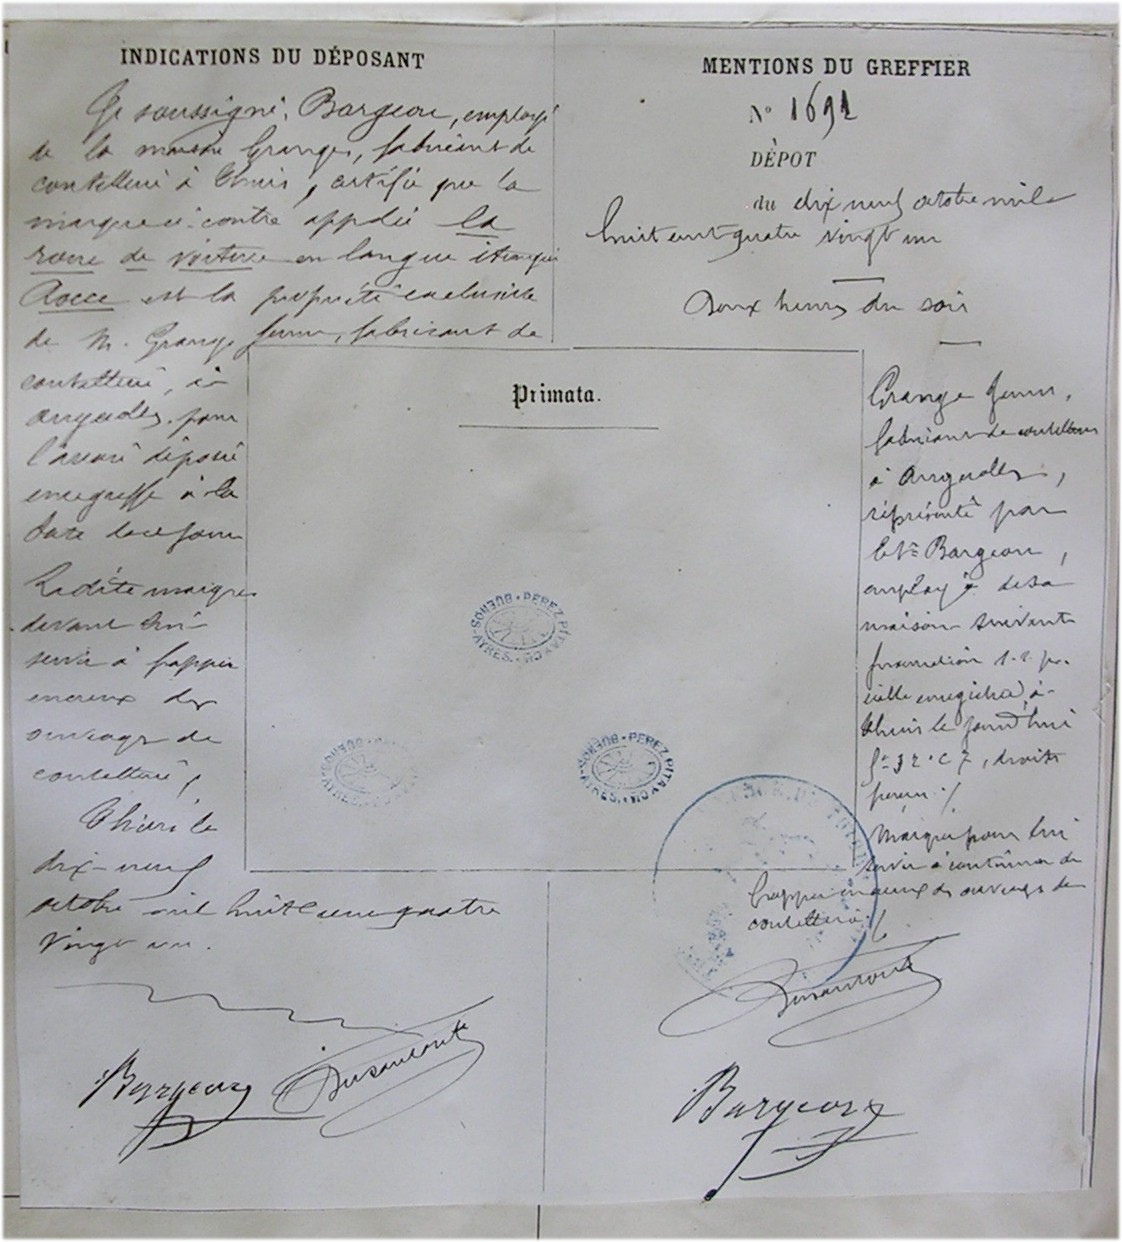 INDICATIONS DU DÉPOSANT
Je soussigné, Bargeon, employé
de la maison Grange, fabricant de
coutellerie à Thiers, certifie que la
marque ci-contre appelée la
roue de voiture en langue étrangère
est la propriété exclusive
de M. Grange Jeune, fabricant de
coutellerie, à
pour
l'avoir déposée
au greffe à la
date
Ladite marque
devant lui
servir à frapper
en creux des
ouvrages de
coutellerie,
Thiers le
dix-neuf
octobre mil huit cent quatre
vingt un.
Bargeon
MENTIONS DU GREFFIER
N° 1691
DÉPOT
du dix neuf octobre mil
huit cent quatre vingt un
Deux heures du soir
Primata.
Grange Jeune,
fabricant de coutellerie
à
représenté par
Bargeon,
employé de sa
maison suivant
enregistré à
Thiers le jourd'hui
droits
perçus
Marque pour lui
servir à continuer de
frapper en creux des ouvrages de
coutellerie
Bargeon
PEREZ PITA Y CO
BUENOS-AYRES
PEREZ PITA Y CO
BUENOS-AYRES
BUENOS-AYRES